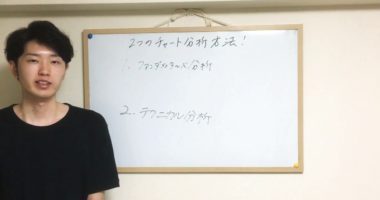 2つのチャート分析方法!
1. ファンダメンタルズ分析
2. テクニカル分析